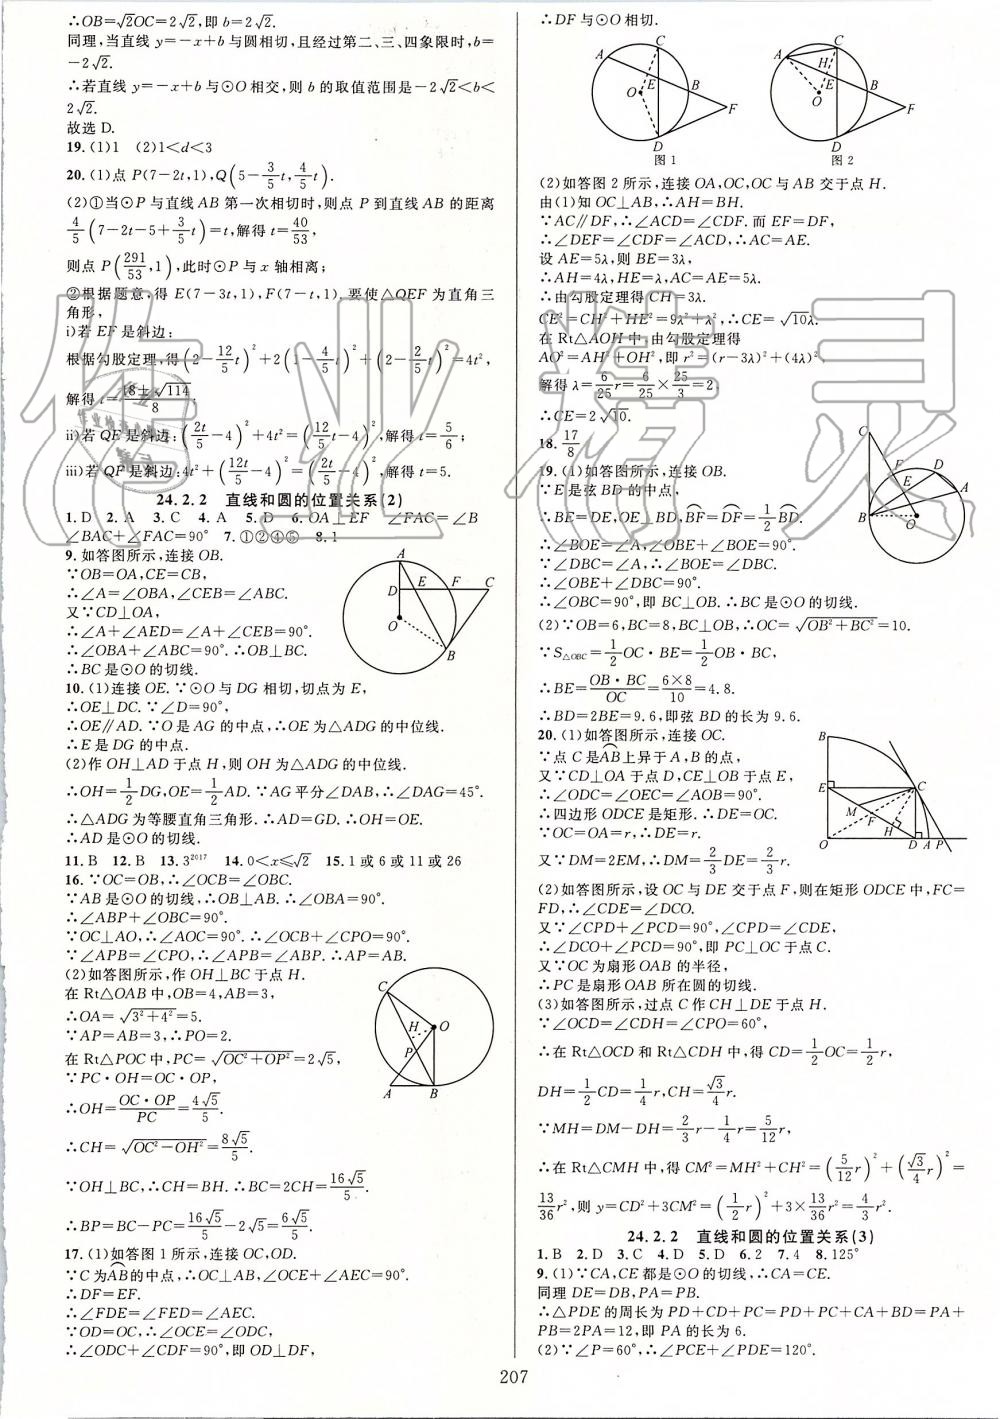 ∴OB=√2OC=2√2,即b=2√2.
同理,当直线y=-x+b与圆相切,且经过第二、三、四象限时,b=
-2√2.
∴若直线y=-x+b与⊙O相交,则b的取值范围是-2√2<b<
2√2.
故选D.
19.(1)1 (2)1<d<3
20.(1)点P(7-2t,1),Q(5-3/5t,4/5t).
(2)①当⊙P与直线AB第一次相切时,则点P到直线AB的距离
4/5(7-2t-5+3/5t)=t,解得t=40/53,
则点P(291/53,1),此时⊙P与x轴相离;
②根据题意,得E(7-3t,1),F(7-t,1).要使△QEF为直角三
角形,
i)若EF是斜边:
根据勾股定理,得(2-12/5t)²+2(1-4/5t)²+(2-2/5t)²=4t²,
解得t=(18±√114)/8.
ii)若QE是斜边:(2t/5-4)²+4t²=(12/5t-4)²,解得t=5/6;
iii)若QF是斜边:4t²+(12t/5-4)²=(2/5t-4)²,解得t=5.
24.2.2 直线和圆的位置关系(2)
1.D 2.A 3.C 4.A 5.D 6.OA⊥EF ∠FAC=∠B
∠BAC+∠FAC=90° 7.①②④⑤ 8.1
9.如答图所示,连接OB.
∵OB=OA,CE=CB,
∴∠A=∠OBA,∠CEB=∠ABC.
又∵CD⊥OA,
∴∠A+∠AED=∠A+∠CEB=90°.
∴∠OBA+∠ABC=90°.∴OB⊥BC.
∴BC是⊙O的切线.
A
D
E
F
C
O
B
10.(1)连接OE.∵⊙O与DG相切,切点为E,
∴OE⊥DC.∵∠D=90°,
∴OE∥AD.∵O是AG的中点,∴OE为△ADG的中位线.
∴E是DG的中点.
(2)作OH⊥AD于点H,则OH为△ADG的中位线.
∴OH=1/2DG,OE=1/2AD.∵AG平分∠DAB,∴∠DAG=45°.
∴△ADG为等腰直角三角形.∴AD=GD.∴OH=OE.
∴AD是⊙O的切线.
11.B 12.B 13.3²⁰¹⁷ 14.0<x≤√2 15.1或6或11或26
16.∵OC=OB,∴∠OCB=∠OBC.
∵AB是⊙O的切线,∴OB⊥AB.∴∠OBA=90°.
∴∠ABP+∠OBC=90°.
∵OC⊥AO,∴∠AOC=90°.∴∠OCB+∠CPO=90°.
∵∠APB=∠CPO,∴∠APB=∠ABP.∴AP=AB.
(2)如答图所示,作OH⊥BC于点H.
在Rt△OAB中,OB=4,AB=3,
∴OA=√(3²+4²)=5.
∵AP=AB=3,∴PO=2.
在Rt△POC中,PC=√(OC²+OP²)=2√5,
∵PC·OH=OC·OP,
∴OH=OC·OP/PC=4√5/5.
∴CH=√(OC²-OH²)=8√5/5.
∵OH⊥BC,∴CH=BH.∴BC=2CH=16√5/5.
∴BP=BC-PC=16√5/5-2√5=6√5/5.
C
H
O
P
A
B
17.(1)如答图1所示,连接OC,OD.
∵C为AB的中点,∴OC⊥AB,∠OCE+∠AEC=90°.
∴DF=EF.
∴∠FDE=∠FED=∠AEC.
∵OD=OC,∴∠OCE=∠ODC,
∴∠ODC+∠CDF=90°,即OD⊥DF,
∴DF与⊙O相切.
A
C
E
B
O
F
D
图1
A
C
H
E
B
O
F
D
图2
(2)如答图2所示,连接OA,OC,OC与AB交于点H.
由(1)知OC⊥AB,∴AH=BH.
∵AC∥DF,∴∠ACD=∠CDF.而EF=DF,
∴∠DEF=∠CDF=∠ACD,∴AC=AE.
设AE=5λ,则BE=3λ,
∴AH=4λ,HE=λ,AC=AE=5λ.
∴由勾股定理得CH=3λ.
CE²=CH²+HE²=9λ²+λ²,∴CE=√10λ.
在Rt△AOH中,由勾股定理得
AO²=AH²+OH²,即r²=(r-3λ)²+(4λ)²
解得λ=6/25r=6/25×25/3=2.
∴CE=2√10.
18.17/8
19.(1)如答图所示,连接OB.
∵E是弦BD的中点,
∴BE=DE,OE⊥BD,BF=DF=1/2BD.
∴∠BOE=∠A,∠OBE+∠BOE=90°.
∵∠DBC=∠A,∴∠BOE=∠DBC.
∴∠OBE+∠DBC=90°.
∴∠OBC=90°,即BC⊥OB.∴BC是⊙O的切线.
C
F
D
E
A
B
O
(2)∵OB=6,BC=8,BC⊥OB,∴OC=√(OB²+BC²)=10.
∵S△OBC=1/2OC·BE=1/2OB·BC,
∴BE=OB·BC/OC=6×8/10=4.8.
∴BD=2BE=9.6,即弦BD的长为9.6.
20.(1)如答图所示,连接OC.
∵点C是AB上异于A,B的点,
又∵CD⊥OA于点D,CE⊥OB于点E,
∴∠ODC=∠OEC=∠AOB=90°.
∴四边形ODCE是矩形.∴DE=OC.
∵OC=OA=r,∴DE=r.
又∵DM=2EM,∴DM=2/3DE=2/3r.
B
E
C
M
F
H
O
D
A
P
(2)如答图所示,设OC与DE交于点F,则在矩形ODCE中,FC=
FD,∴∠CDE=∠DCO.
又∵∠CPD+∠PCD=90°,∠CPD=∠CDE,
∴∠DCO+∠PCD=90°,即PC⊥OC于点C.
又∵OC为扇形OAB的半径,
∴PC是扇形OAB所在圆的切线.
(3)如答图所示,过点C作CH⊥DE于点H.
∵∠OCD=∠CDH=∠CPO=60°,
∴在Rt△OCD和Rt△CDH中,得CD=1/2OC=1/2r,
DH=1/2CD=1/4r,CH=√3/4r.
∵MH=DM-DH=2/3r-1/4r=5/12r,
∴在Rt△CMH中,得CM²=MH²+CH²=(5/12r)²+(√3/4r)²=
13/36r²,则y=CD²+3CM²=(1/2r)²+3×13/36r²=4/3r².
24.2.2 直线和圆的位置关系(3)
1.B 2.D 3.C 4.D 5.D 6.2 7.4 8.125°
9.(1)∵CA,CE都是⊙O的切线,∴CA=CE.
同理DE=DB,PA=PB.
∴△PDE的周长为PD+CD+PC=PD+PC+CA+BD=PA+
PB=2PA=12,即PA的长为6.
(2)∵∠P=60°,∴∠PCE+∠PDE=120°.
207
作业精灵